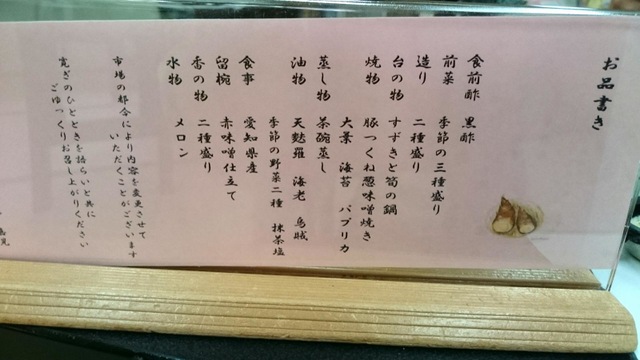 お品書き
食前酢 黒酢
前菜 季節の三種盛り
造り 二種盛り
台の物 すずきと筍の鍋
焼物 豚つくね葱味噌焼き
大葉 海苔 パプリカ
蒸し物 茶碗蒸し
油物 天麩羅 海老 烏賊
季節の野菜二種 抹茶塩
食事 愛知県産
留椀 赤味噌仕立て
香の物 二種盛り
水物 メロン
市場の都合により内容を変更させて
いただくことがございます
寛ぎのひとときを語らいと共に
ごゆっくりお召し上がりください